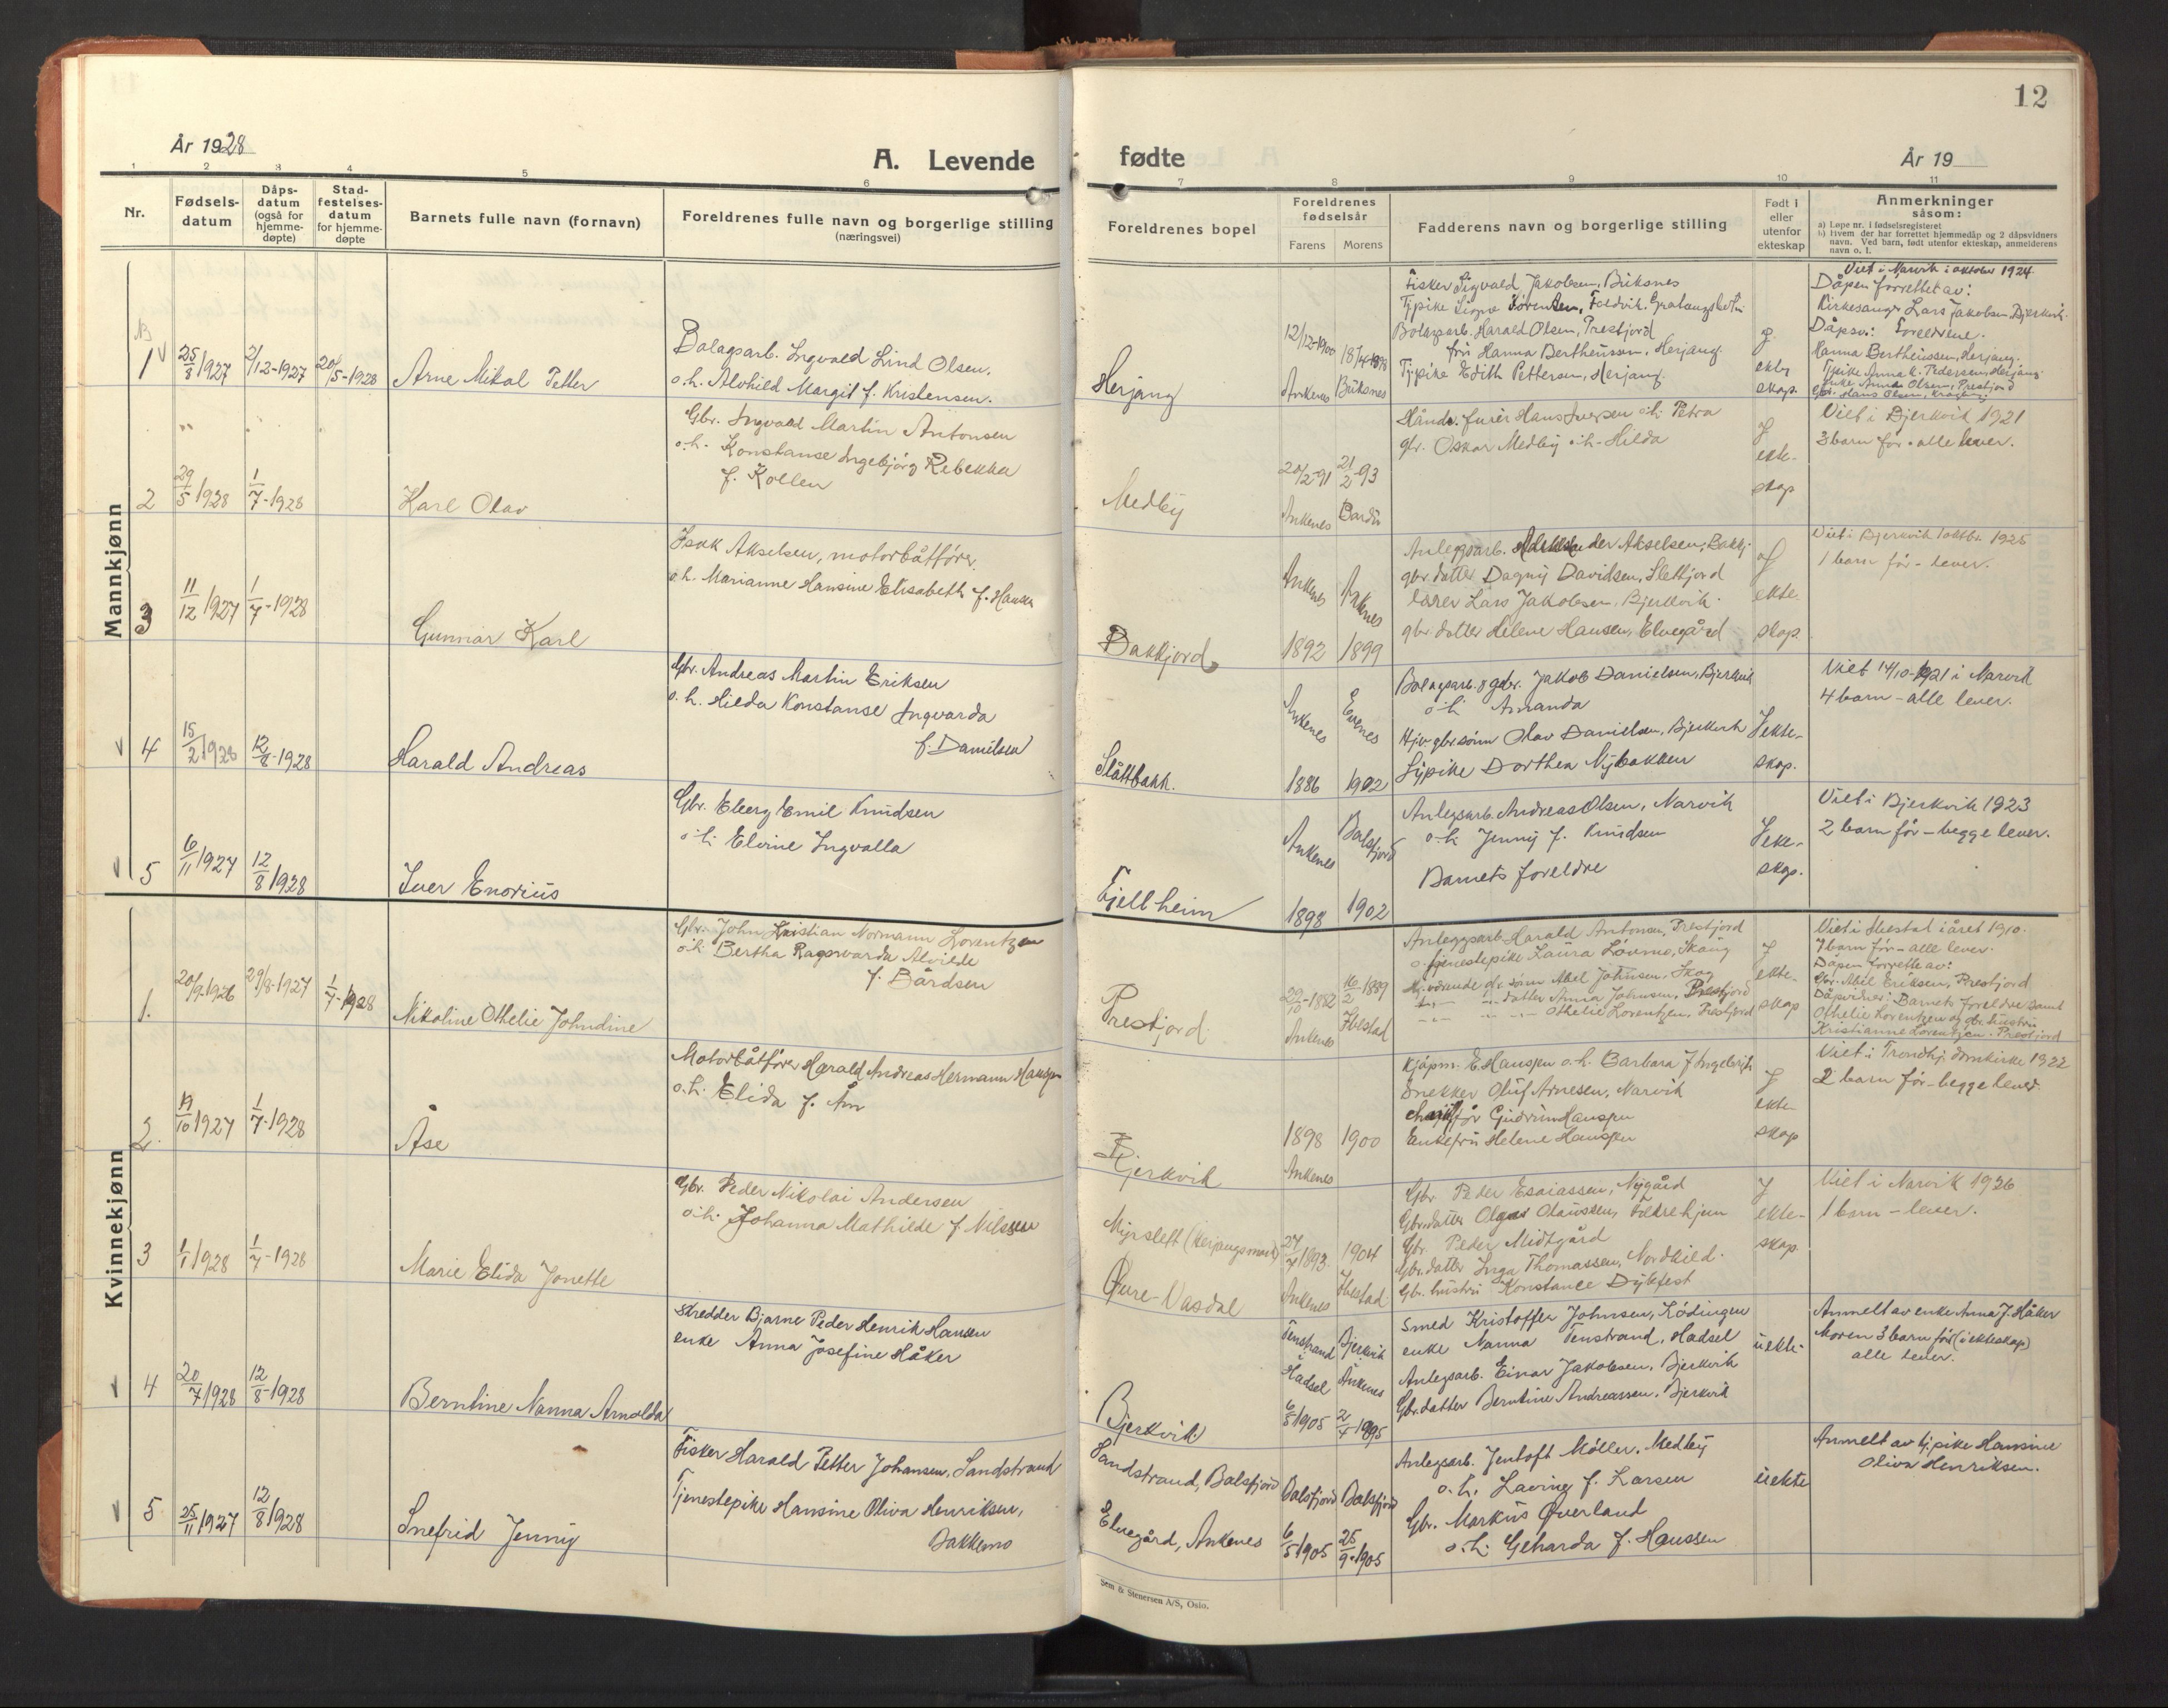 12
År 1928
A. Levende
fødte
År 19
1 2 3 4 5 6 7 8 9 10 11
Nr.
Fødsels-
datum
Dåps-
datum
(også for
hjemme-
døpte)
Stad-
festelses-
datum
for hjemme-
døpte
Barnets fulle navn (fornavn)
Foreldrenes fulle navn og borgerlige stilling
(næringsvei)
Foreldrenes bopel
Foreldrenes
fødselsår
Farens Morens
Fadderens navn og borgerlige stilling
Født i
eller
utenfor
ekteskap
Anmerkninger
såsom:
a) Løpe nr. i fødselsregisteret
b) Hvem der har forrettet hjemmedåp og 2 dåpsvidners
navn. Ved barn, født utenfor ekteskap, anmelderens
navn o. l.
Mannkjønn
1 25/8 1927 2/12-1927 20/5-1928
Arne Mikal Petter
Bolagsarb. Ingvald Lind Olsen.
o.h. Alvhild Margit f. Kristensen.
Herjang
12/12-1900 18/4-1898
Ankenes Buksnes
Fisker Sigvald Jakobsen, Buksnes
Tjpike Signe Sørensen, Foldvik. Gratangsbotn
Bolagsarb. Harald Olsen, Prestjord
fru Hanna Bertheussen, Herjang.
Tjpike Edith Pettersen, Herjang.
J.
ekte
skap.
Viet i Narvik i oktober 1924.
Dåpen forrettet av:
Kirkesanger Lars Jakobsen, Bjerkvik.
Dåpsv.: Foreldrene.
Hanna Bertheussen, Herjang.
Tjpike Anna K. Pedersen, Herjang
enke Anna Olsen, Prestjord
gbr. Hans Olsen,
2 29/5 1928 1/7-1928
Karl Olav
Gbr. Ingvald Martin Antonsen
o.h. Konstanse Ingebjørg Rebekka
f. Kollen
Medby
20/2-91 21/2-93
Ankenes Bardu
Håndv. furer Hans Iversen o.h. Petra
gbr. Oskar Medby o.h. Hilda
J
ekte-
skap
Viet i Bjerkvik 1921
3 barn før - alle lever.
3 11/12 1927 1/7-1928
Gunnar Karl
Isak Akselsen, motorbåtfører.
o.h. Marianne Hansine Elisabeth f. Hansen
Bakkjord
Ankenes Ankenes
1892 1899
Anleggsarb. Aleksander Akselsen, Bakkj.
gbr. datter Dagny Davidsen, Sletfjord
lærer Lars Jakobsen, Bjerkvik.
gbr. datter Helene Hansen, Elvegård
J
ekte
skap.
Viet i Bjerkvik i oktbr. 1925
1 barn før - lever.
4 15/2 1928 12/8-1928
Harald Andreas
Gbr. Andreas Martin Eriksen
o.h. Hilda Konstanse Ingvarda
f. Danielsen
Slåttbakk.
Ankenes Evenes
1886 1902
Bolagsarb. og gbr. Jakob Danielsen, Bjerkvik
o.h. Amanda
Hjv. gbr. sønn Olav Danielsen, Bjerkvik
Tjpike Dorthea Nybakken
J ekte-
skap.
Viet 14/10-1921 i Narvik
4 barn - alle lever.
5 6/11 1927 12/8 1928
Iver Enorius
Gbr. Elberg Emil Knudsen
o.h. Elvine Ingvalla
Fjellheim
Ankenes Balsfjord
1898 1902
Anlegsarb. Andreas Olsen, Narvik
o.h. Jenny f. Knudsen
Barnets foreldre
J eke-
skap.
Viet i Bjerkvik 1923
2 barn før - begge lever.
Kvinnekjønn
1. 20/9-1926 29/8-1927 1/7-1928
Nikoline Othelie Johndine
Gbr. John Kristian Normann Lorentzen
o.h. Bertha Ragnvarda Alvilde
f. Bårdsen
Prestjord
29/10-1882 16/2-1889
Ankenes Ibestad
Anleggsarb. Harald Antonsen, Prestjord
o. tjenestepike Laura Løvmo, Skåug
Hj. værende gbr. sønn Abel Johnsen, Skog
datter Anna Johnsen, Prestjord
Othelie Lorentzen, Prestjord
J
ekte-
skap
Viet i Ibestad i året 1910.
7 barn før - alle lever.
Dåpen forrette av:
Gbr. Abel Eriksen, Prestjord
Dåpvidner: Barnets foreldre samt
Othelie Lorentzen og gbr. hustru
Kristianne Lorentzen. Prestjord
2. 19/10 1927 1/7-1928
Åse
Motorbåtfører Harald Andreas Hermann Hansen
o.h. Elida f. Ån
Bjerkvik
1898 1900
Ankenes
Kjøpm. E. Hanssen o.h. Barbara f. Ingebrigts
Snekker Oluf Arnesen, Narvik
Gudrun Hanssen
Enkefru Helene Hanssen
J
ekte-
skap
Viet i Trondhj. domkirke 1922
2 barn før - begge lever.
3 1/1 1928 1/7-1928
Marie Elida Jonette
Gbr. Peder Nikolai Andersen
o.h. Johanna Mathilde f. Nilssen
Myrslett (Herjangsmark)
Øvre-Vasdal
27/7 1893. 1904
Ankenes Ibestad
Gbr. Peder Esaiassen, Nygård
Gbr. datter Olga Olaussen,
Gbr. Peder Midtgård
Gbr. datter Inga Thomassen, Nordkild.
Gbr. hustru Konstance Dybfest
J
ekte-
skap
Viet i Narvik 1926
1 barn - lever.
4 20/7 1928 12/8-1928
Berntine Nanna Arnolda
Skredder Bjarne Peder Henrik Hansen
enke Anna Josefine Håker
Bjerkvik
Tenstrand Bjerkvik
Hadsel Ankenes
6/5 1905 2/4-1895
Smed Kristoffer Johnsen, Lødingen
enke Nanna Tenstrand, Hadsel
Anlegsarb. Einar Jakobsen, Bjerkvik
Gbr. datter Berntine Andreassen, Bjerkvik
uekte-
Anmelt av enke Anna J. Håker
Moren 3 barn før (i ekteskap)
alle lever.
5 25/11 1927 12/8 1928
Snefrid Jenny
Fisker Harald Petter Johansen, Sandstrand
Tjenestepike Hansine Oliva Henriksen,
Bakkemo
Sandstrand, Balsfjord
Elvegård, Ankenes
Balsfjord Balsfjord
6/5 1905 25/9-1905
Anlegsarb. Jentoft Møller, Medby
o.h. Laving f. Larsen
Gbr. Markus Øverland
o.h. Geharda f. Hanssen
uekte
Anmelt av tj. pike Hansine
Oliva Henriksen.
Sem & Stenersen A/S, Oslo.